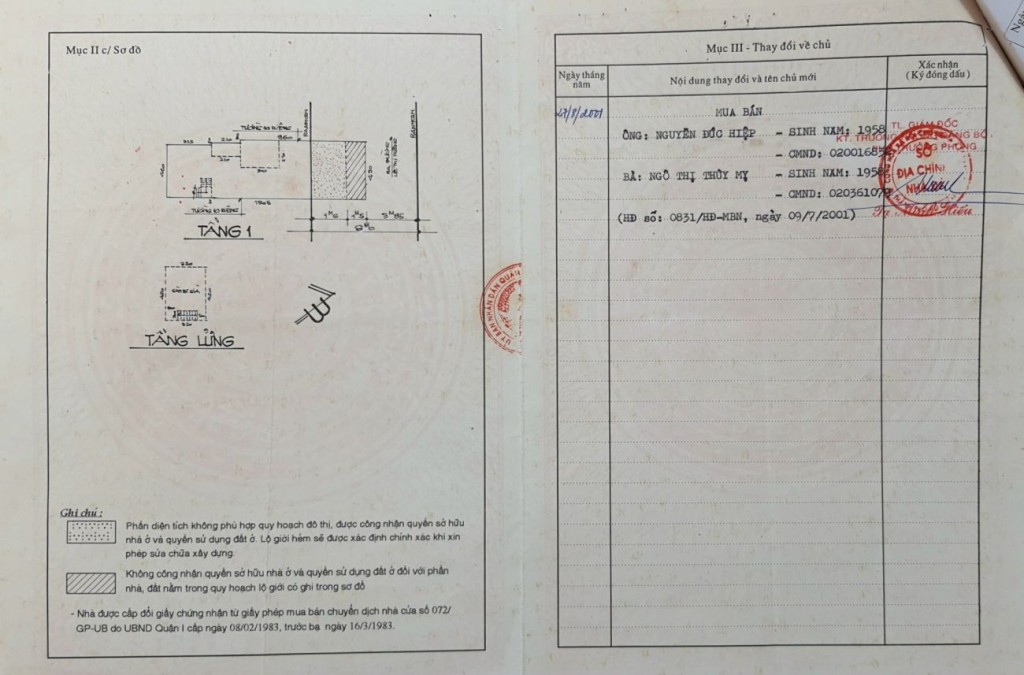 Mục II c/ Sơ đồ
TẦNG 1
TẦNG LỬNG
Ghi chú :
Phần diện tích không phù hợp quy hoạch đô thị, được công nhận quyền sở hữu
nhà ở và quyền sử dụng đất ở. Lộ giới hẻm sẽ được xác định chính xác khi xin
phép sửa chữa xây dựng.
Không công nhận quyền sở hữu nhà ở và quyền sử dụng đất ở đối với phần
nhà, đất nằm trong quy hoạch lộ giới có ghi trong sơ đồ
- Nhà được cấp đổi giấy chứng nhận từ giấy phép mua bán chuyển dịch nhà cửa số 072/
GP-UB do UBND Quận I cấp ngày 08/02/1983, trước bạ ngày 16/3/1983.
ỦY BAN NHÂN DÂN QUẬN
Mục III - Thay đổi về chủ
Ngày tháng
năm
Nội dung thay đổi và tên chủ mới
Xác nhận
( Ký đóng dấu )
MUA BÁN
ÔNG: NGUYỄN ĐỨC HIỆP - SINH NĂM: 1958
- CMND:
BÀ: NGÔ THỊ THÚY MY - SINH NĂM:
- CMND:
(HĐ số: 0831/HĐ-MBN, ngày 09/7/2001)
TL. GIÁM ĐỐC
SỞ
ĐỊA CHÍNH